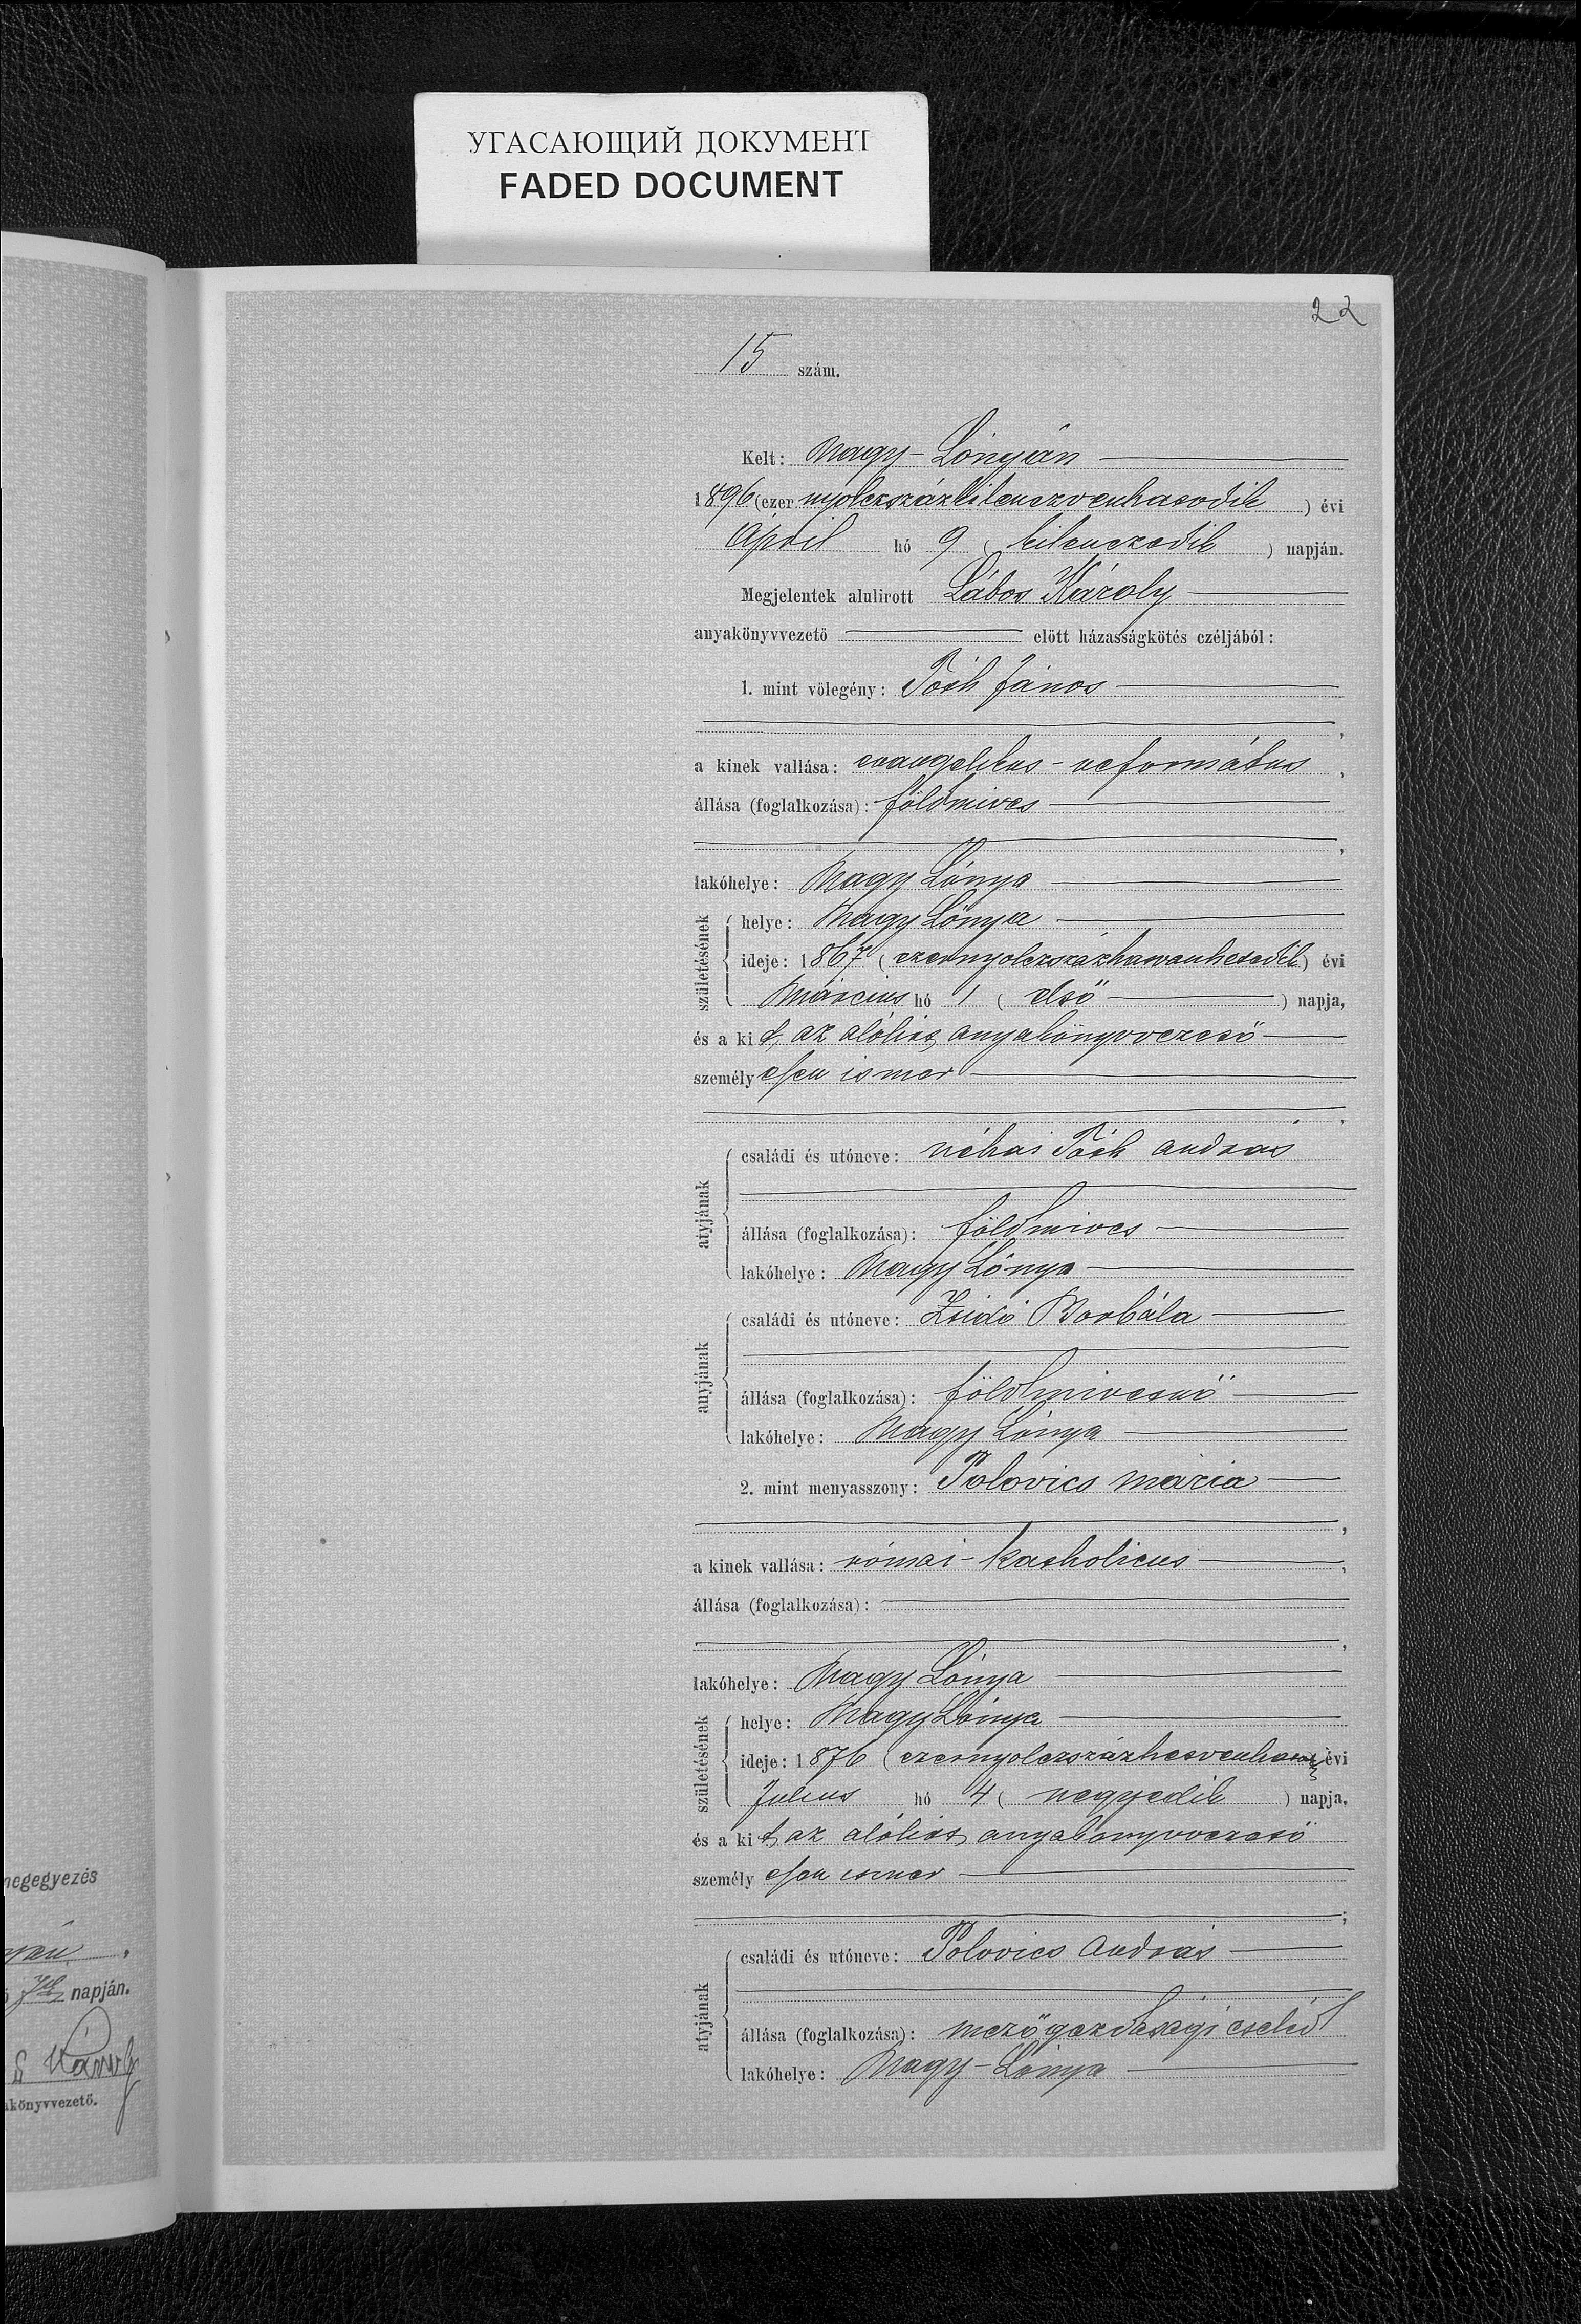 УГАСАЮЩИЙ ДОКУМЕНТ
FADED DOCUMENT
22
15 szám.
Kelt: Nagy-Lónyán
1896 (ezer nyolczszázkilenczvenhatodik) évi
April hó 9 (kilenczedik) napján.
Megjelentek alulirott Lábos Károly
anyakönyvvezető előtt házasságkötés czéljából:
1. mint vőlegény: Tóth János
a kinek vallása: evangelikus-református,
állása (foglalkozása): földmives
lakóhelye: Nagy Lónya
születésének
helye: Nagy Lónya
ideje: 1867 (ezernyolczszázhatvanhetedik) évi
Március hó 1 (első) napja,
és a kit, az alólirt anyakönyvvezető
személyesen ismer
atyjának
családi és utóneve: néhai Tóth András
állása (foglalkozása): földmives
lakóhelye: Nagy Lónya
anyjának
családi és utóneve: Zsidó Borbála
állása (foglalkozása): földmivesnő
lakóhelye: Nagy Lónya
2. mint menyasszony: Polovics Mária
a kinek vallása: római-katholicus,
állása (foglalkozása):
lakóhelye: Nagy Lónya
születésének
helye: Nagy Lónya
ideje: 1876 (ezernyolczszázhetvenhatod évi
Julius hó 4 (negyedik) napja,
és a kit, az alólirt anyakönyvvezető
személyesen ismer
atyjának
családi és utóneve: Polovics András
állása (foglalkozása): mezőgazdasági cseléd
lakóhelye: Nagy-Lónya
megegyezés
napján.
Károly
akönyvvezető.